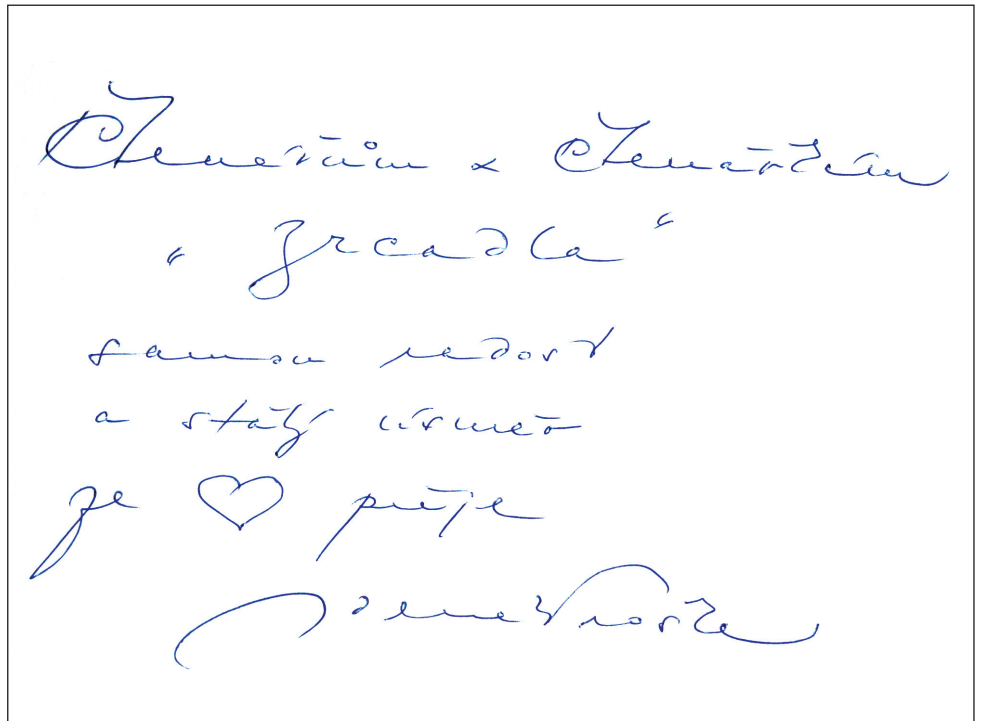 Čtenářům a čtenářkám
"Zrcadla"
samou radost
a stálý úsměv
ze ♡ přeje
Zdeněk Troška